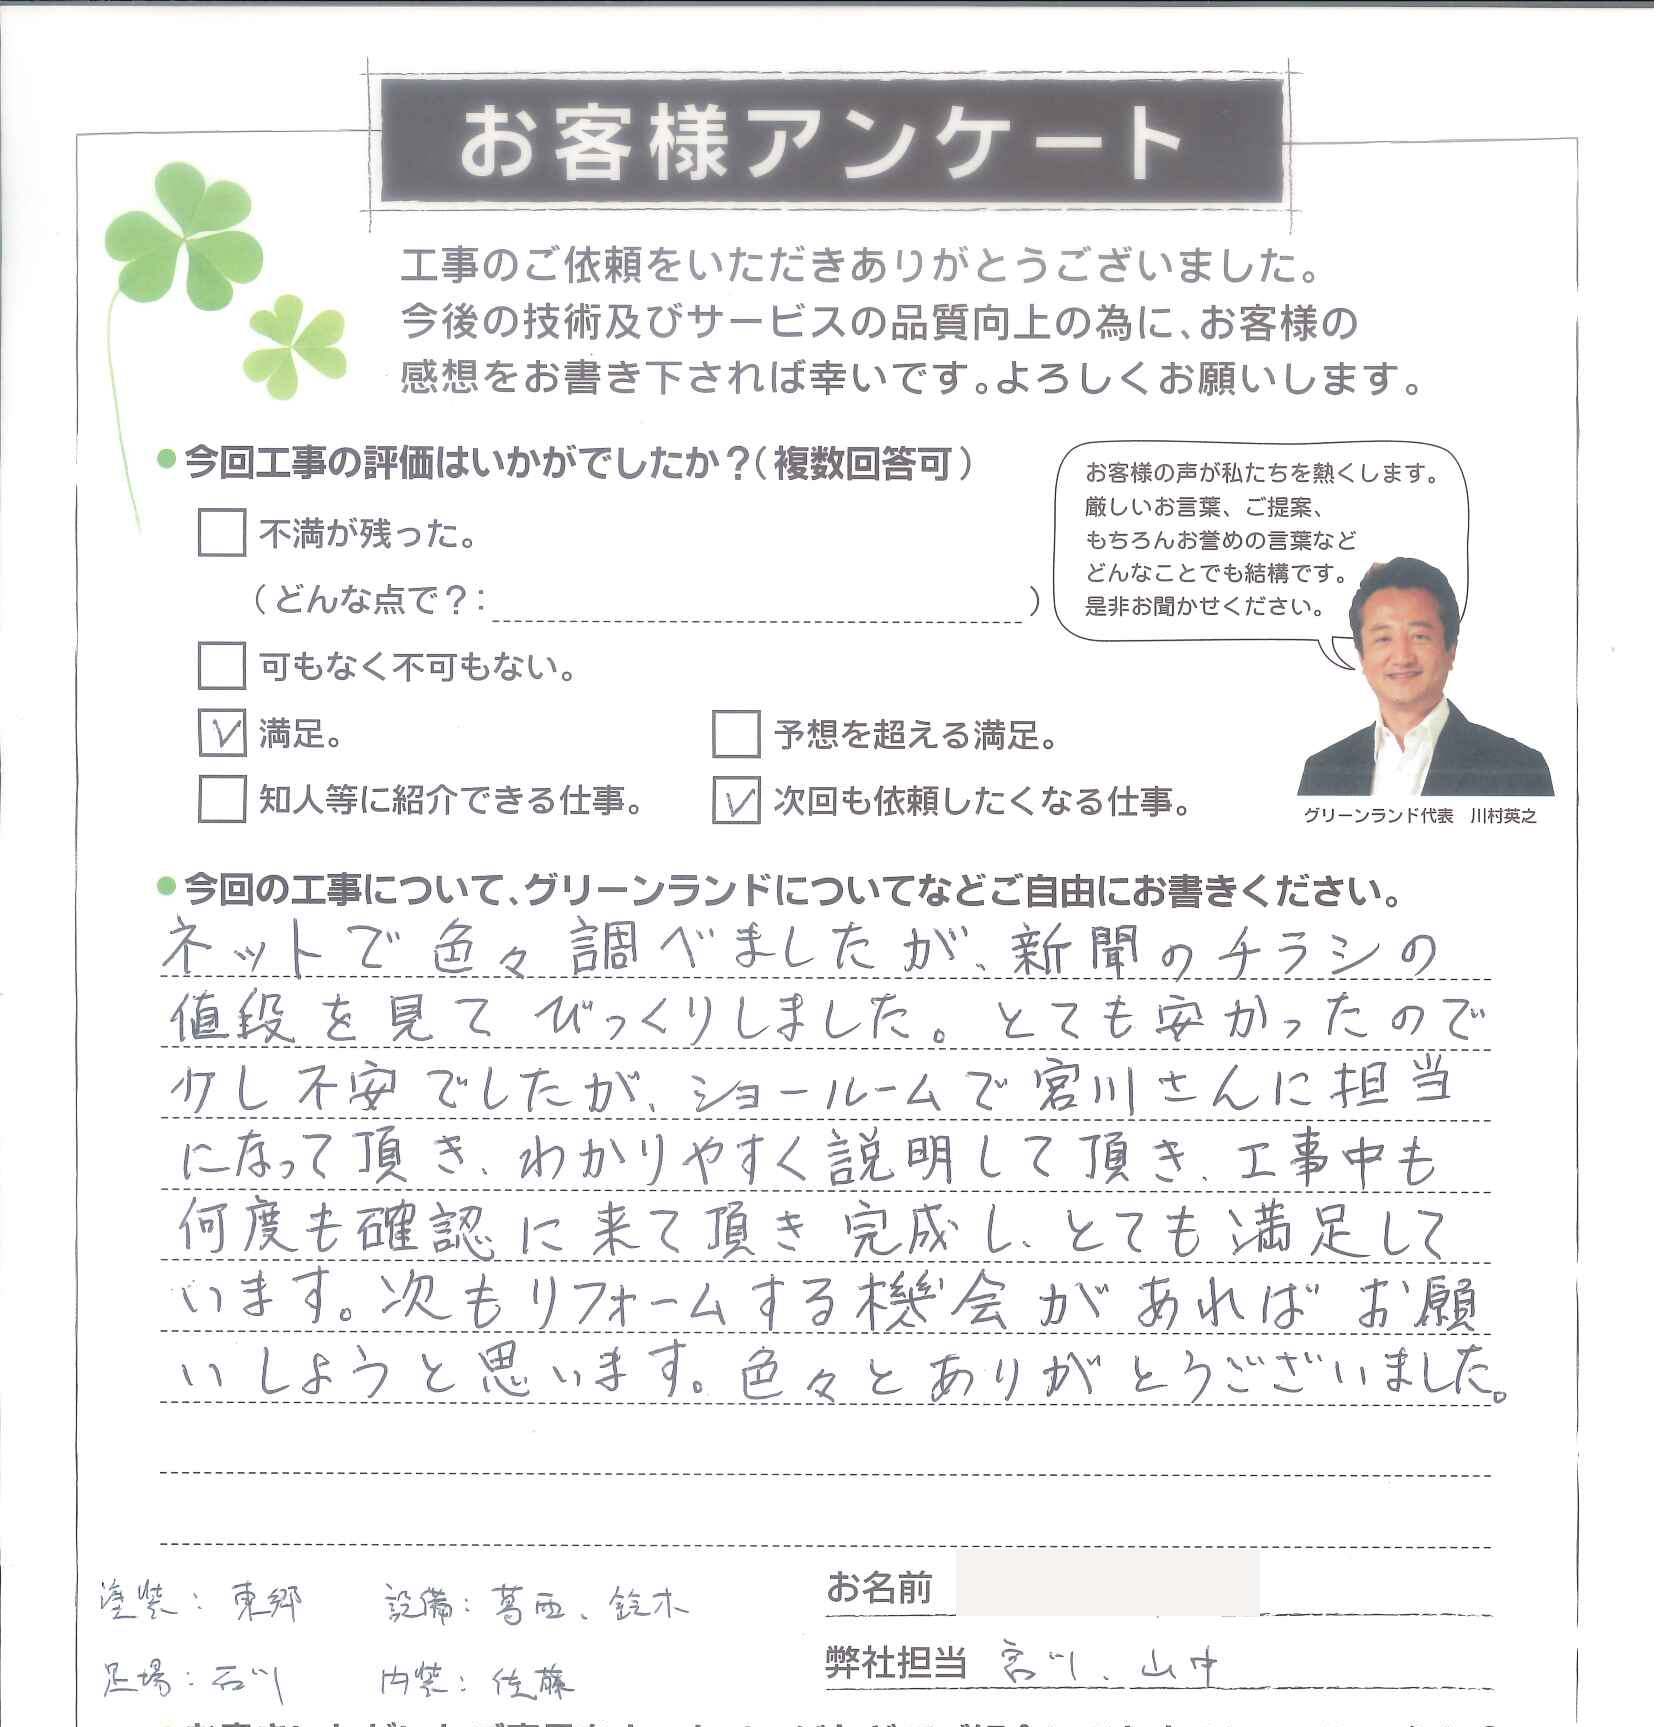 お客様アンケート
工事のご依頼をいただきありがとうございました。
今後の技術及びサービスの品質向上の為に、お客様の
感想をお書き下されば幸いです。よろしくお願いします。
●今回工事の評価はいかがでしたか？（複数回答可）
不満が残った。
（どんな点で？：　）
可もなく不可もない。
✓満足。
予想を超える満足。
知人等に紹介できる仕事。
✓次回も依頼したくなる仕事。
お客様の声が私たちを熱くします。
厳しいお言葉、ご提案、
もちろんお誉めの言葉など
どんなことでも結構です。
是非お聞かせください。
グリーンランド代表　川村英之
●今回の工事について、グリーンランドについてなどご自由にお書きください。
ネットで色々調べましたが、新聞のチラシの
値段を見てびっくりしました。とても安かったので
少し不安でしたが、ショールームで宮川さんに担当
になって頂き、わかりやすく説明して頂き、工事中も
何度も確認に来て頂き完成し、とても満足して
います。次もリフォームする機会があればお願
いしようと思います。色々とありがとうございました。
塗装：東郷　設備：葛西、鈴木
足場：石川　内装：佐藤
お名前
弊社担当　宮川、山中